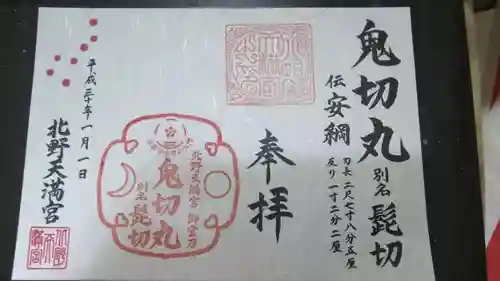 鬼切丸 別名 髭切
伝安綱
刃長 二尺七寸八分五厘
反り 一寸二分二厘
奉拝
北野天満宮 御宝刀
鬼切丸
別名
髭切
平成三十年一月一日
北野天満宮